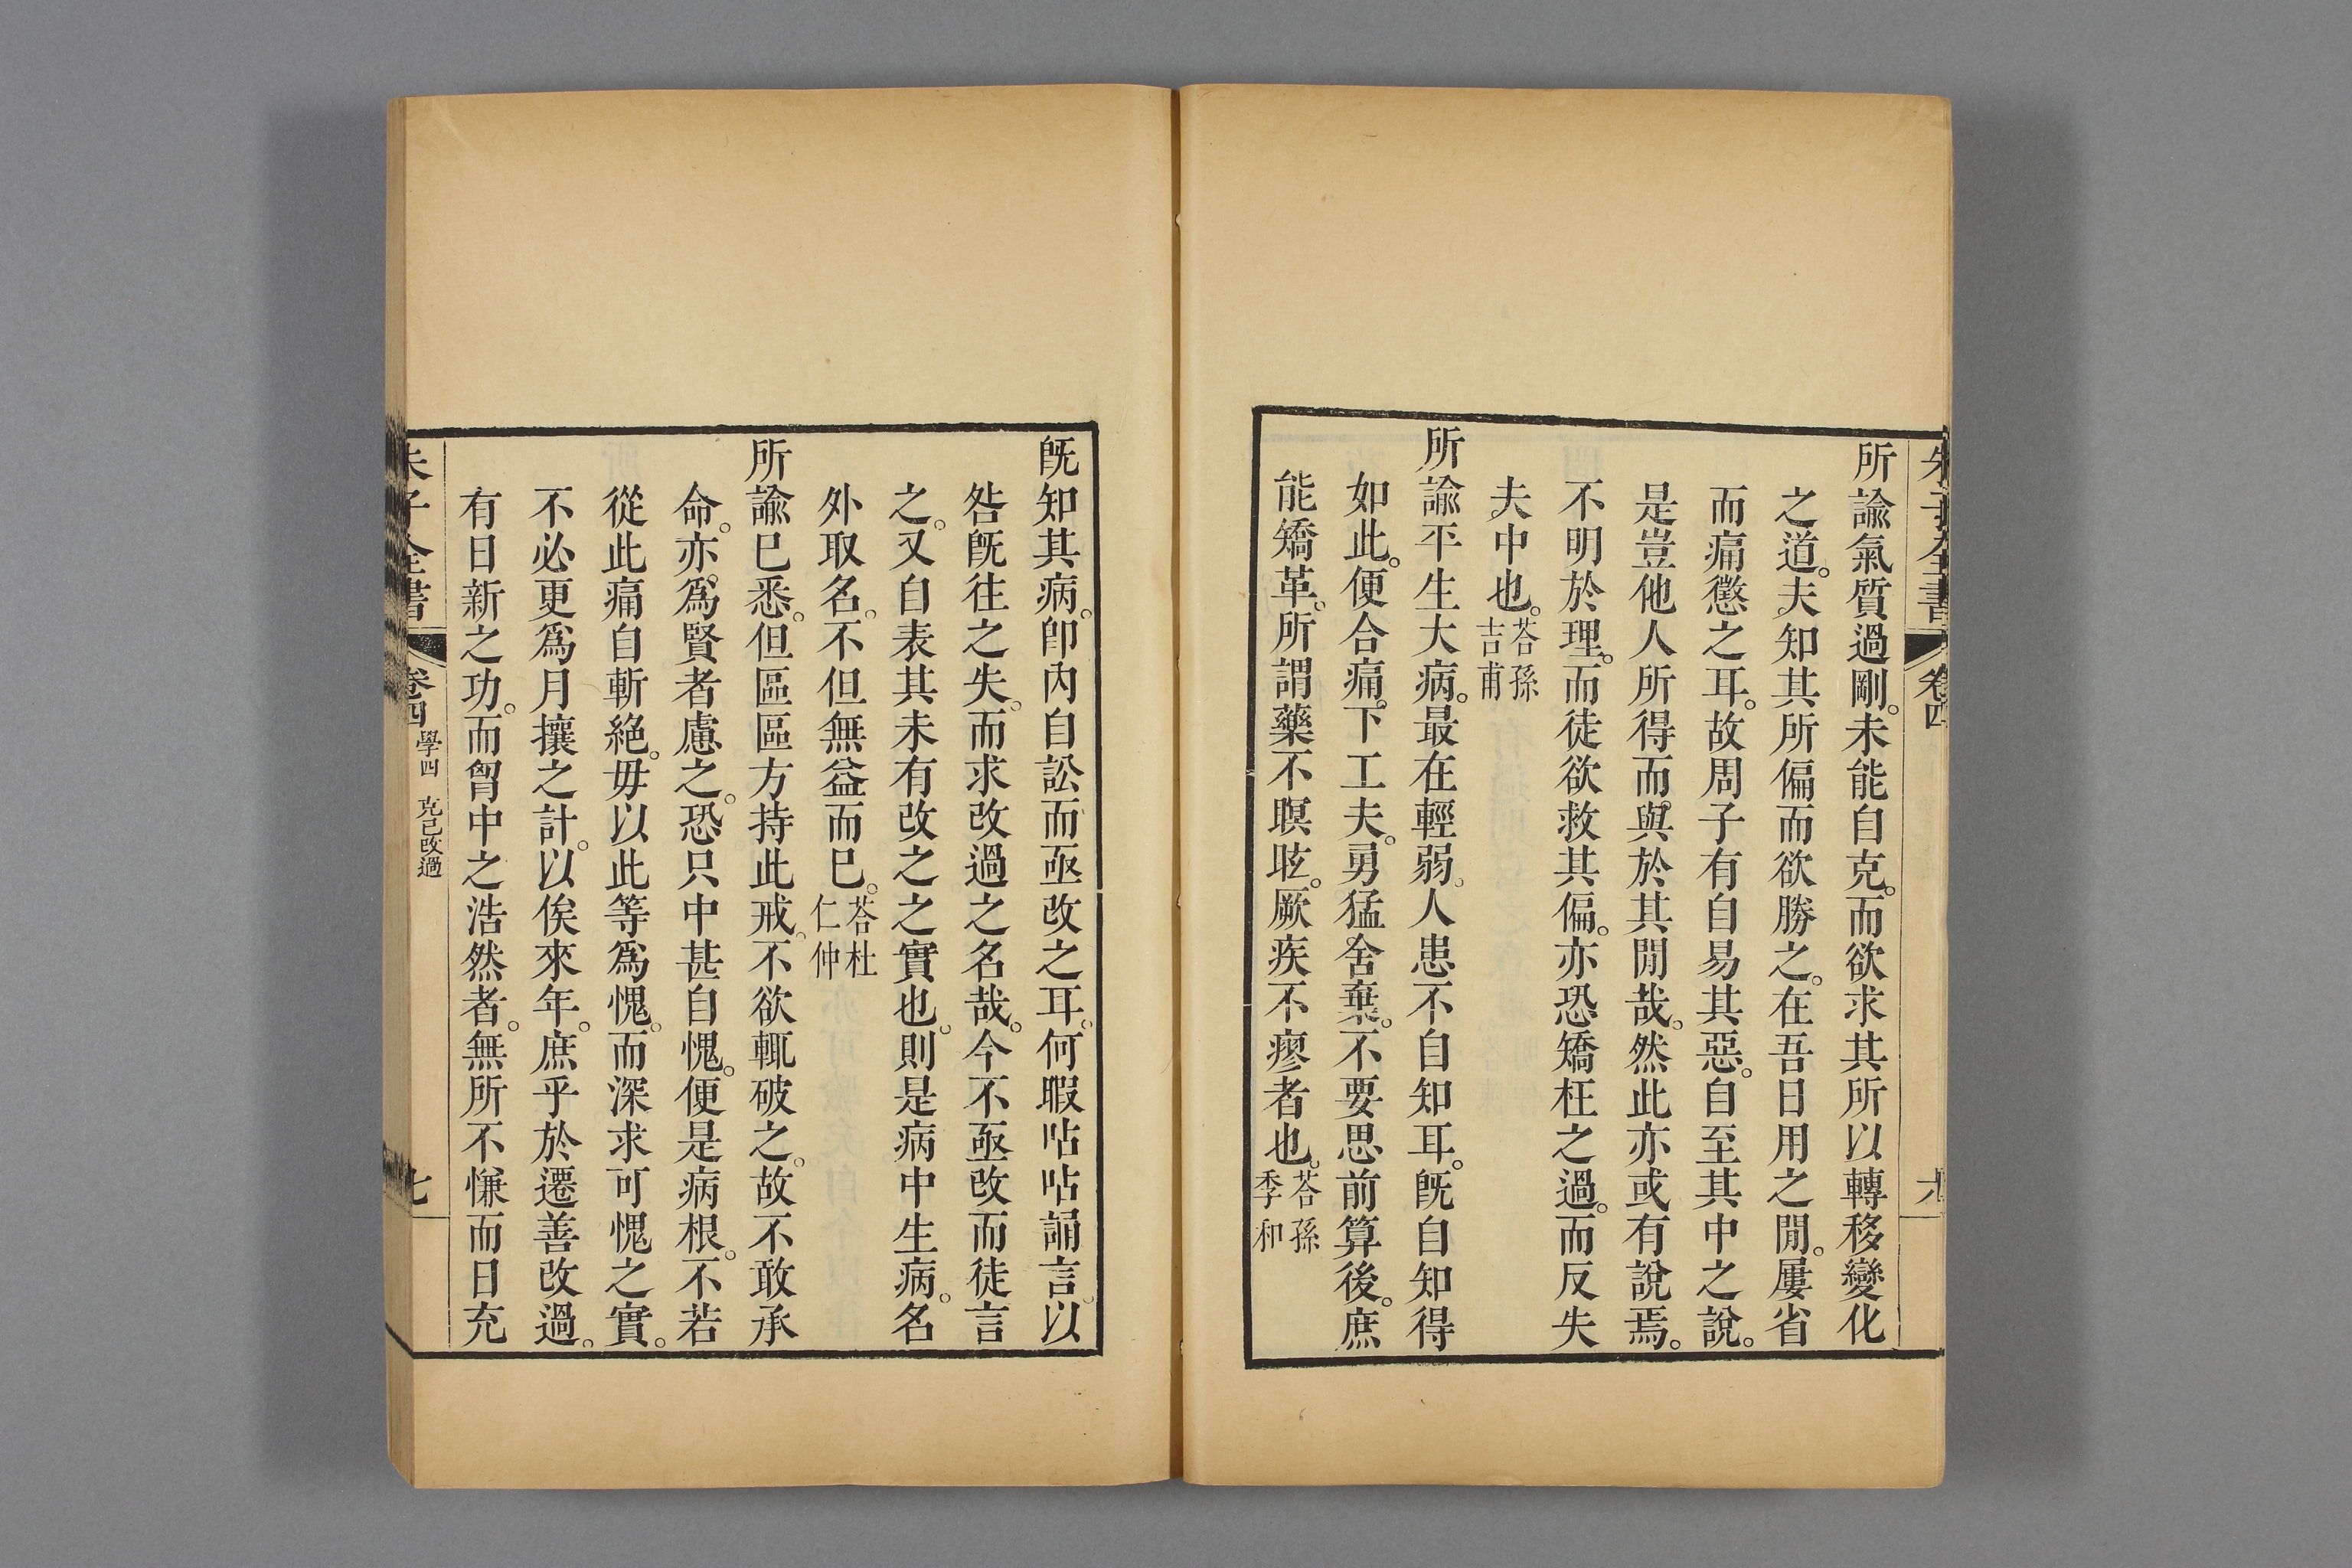 所諭氣質過剛。未能自克。而欲求其所以轉移變化
之道。夫知其所偏而欲勝之。在吾日用之閒。屢省
而痛懲之耳。故周子有自易其惡。自至其中之說。
是豈他人所得而與於其閒哉。然此亦或有說焉。
不明於理。而徒欲救其偏。亦恐矯枉之過。而反失
夫中也。荅孫吉甫
所諭平生大病。最在輕弱。人患不自知耳。旣自知得
如此。便合痛下工夫。勇猛舍棄。不要思前算後。庶
能矯革。所謂藥不瞑眩。厥疾不瘳者也。荅孫季和
旣知其病。卽內自訟而亟改之耳。何暇呫呫誦言。以
咎旣往之失。而求改過之名哉。今不亟改而徒言
之。又自表其未有改之之實也。則是病中生病。名
外取名。不但無益而已。荅杜仁仲
所諭已悉。但區區方持此戒。不欲輒破之。故不敢承
命。亦爲賢者慮之。恐只中甚自愧。便是病根。不若
從此痛自斬絕。毋以此等爲愧。而深求可愧之實。
不必更爲月攘之計。以俟來年。庶乎於遷善改過。
有日新之功。而胷中之浩然者。無所不慊而日充
朱子全書 卷四 學四 克己改過 七